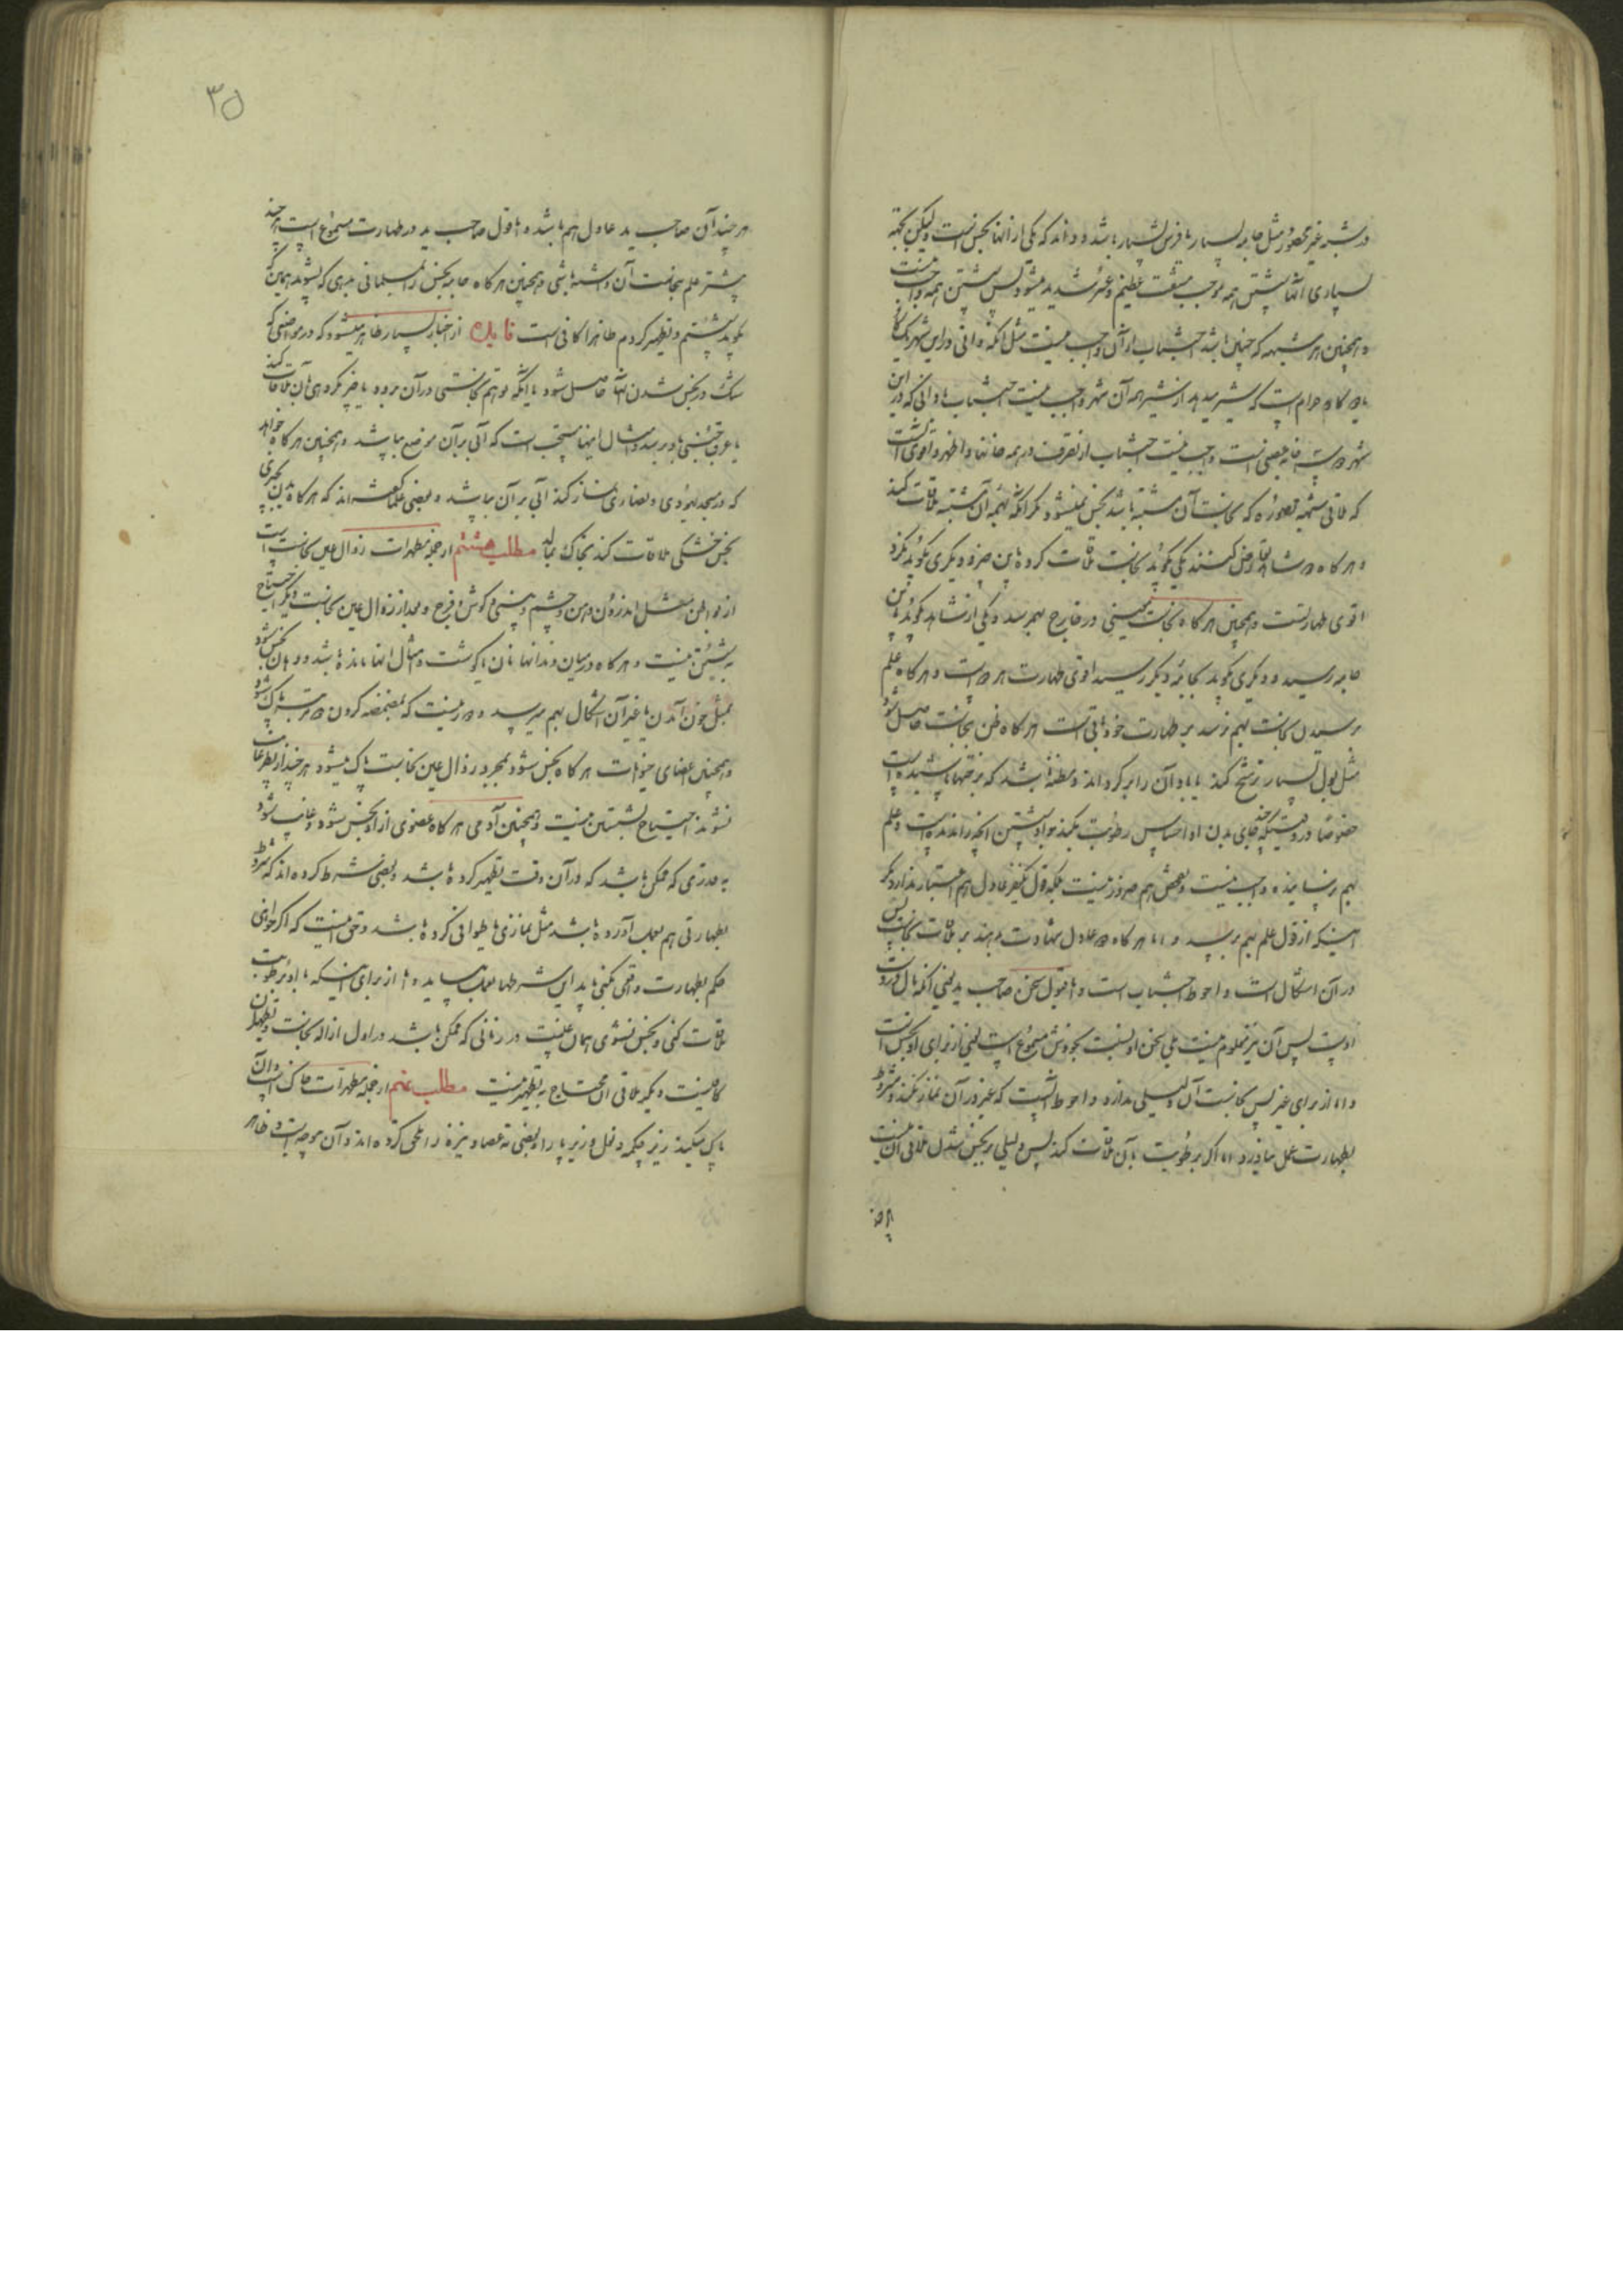 در شبهه غیر محصوره مثل جامه بسیار یا فرش بسیار باشد و داند که یکی از آنها نجس است و لیکن بجهة
بسیاری آنها شستن همه موجب مشقت عظیم و عسر شدید میشود پس شستن همه واجب نیست
و همچنین هر شبهه که چنین باشد اجتناب از آن واجب نیست مثل آنکه دانی در این شهر یک
کاو حرام است که شیر میدهد از شیر همه آن شهر واجب نیست اجتناب یا دانی که در این
شهر خانه غصبی است واجب نیست اجتناب از تصرف در همه خانها و اظهر و اقوی آنست
که ملاقی شبهه محصوره که نجاست آن مشتبه باشد نجس نمیشود مکر آنکه بهمه آن مشتبه ملاقات کند
و هر کاه دو شاهد تعارض کنند یکی کوید نجاست ملاقات کرده باین چیز و دیکری کوید نکرده
اقوی طهارتست و همچنین هر کاه نجاست معینی در خارج بهم رسد و یکی از شاهد کوید باین
جامه رسید و دیکری کوید بجامه دیکر رسید اقوی طهارت هر دو است و هر کاه علم
برسیدن نجاست بهم نرسد بر طهارت خود باقی است هر کاه ظن نجاست حاصل شود
مثل بول بسیار ترشح کند یا باد آن را بر کرداند و مظنه باشد که بر تنها پاشیده است
خصوصا در وقتیکه چند جای بدن او احساس رطوبت بکند و او شستن آنچه را ندیده است و علم
بهم نرسانیده واجب نیست و تفحص هم ضرور نیست بلکه قول یکنفر عادل هم اعتبار ندارد مکر
اینکه از قول علم بهم برسد و اما هر کاه دو عادل شهادت دهند بر ملاقات نجاست پس
در آن اشکال است و احوط اجتناب است و اما قبول سخن صاحب ید یعنی آنکه مال در دست
اوست پس آن نیز معلوم نیست بلی سخن او نسبت بخودش مسموع است یعنی از برای او نجس است
و اما از برای غیر پس نجاست آن دلیلی ندارد و احوط آنست که غیر در آن نماز نکند و مشروط
بطهارت عمل نیاورد و اما اکر برطوبت بآن ملاقات کند پس دلیلی بر نجس شدن ملاقی آن نیست
هر چند
۳۵
هر چند آن صاحب ید عادل هم باشد و اما قول صاحب ید در طهارت مسموع است هر چند
پیشتر علم بنجاست آن داشته باشی و همچنین هر کاه جامه نجس را بمسلمانی بدهی که بشوید همین که
کوید شستم و تطهیر کردم ظاهرا کافی است فایده از اخبار بسیار ظاهر میشود که در مواضعی که
شک در نجس شدن آنها حاصل شود یا اینکه توهم نجاستی در آن برود یا چیز مکروهی بآن ملاقات کند
یا عرق جنبی باو برسد و امثال اینها مستحب است که آبی بر آن موضع بپاشد و همچنین هر کاه خواهد
که در معبد یهودی و نصاری نماز کند آبی بر آن بپاشد و بعضی علما کفته‌اند که هر کاه بدن بچیزی
نجس خشکی ملاقات کند بخاک بمالد مطلب هشتم از جمله مطهرات زوال عین نجاست است
از بواطن مثل اندرون دهن و چشم و بینی و کوش و فرج و بعد از زوال عین نجاست دیکر احتیاج
به شستن نیست و هر کاه در میان دندانها نان یا کوشت و امثال آنها مانده باشد و دهان نجس شود
بمثل خون آمدن یا غیر آن اشکال بهم میرسد و دور نیست که بمضمضه کردن دو مرتبه پاک شود
و همچنین اعضای حیوانات هر کاه نجس شود بمجرد زوال عین نجاست پاک میشود هر چند از نظر غایب
نشوند احتیاج بشستن نیست و همچنین آدمی هر کاه عضوی از او نجس شود و غایب شود
به قدری که ممکن باشد که در آن وقت تطهیر کرده باشد و بعضی شرط کرده‌اند که مشروط
بطهارتی هم بعمل آورده باشد مثل نمازی یا طوافی کرده باشد و حق اینست که اکر خواهی
حکم بطهارت واقعی کنی باید این شرطها بعمل بیاید و اما از برای اینکه با او برطوبت
ملاقات کنی و نجس نشوی همان غیبت در زمانی که ممکن باشد در اول ازاله نجاست و تطهیر آن
کافیست و دیکر ملاقی آن محتاج به تطهیر نیست مطلب نهم از جمله مطهرات خاک است و آن
پاک میکند زیر چکمه و نعل و زیر پا را و بعضی ته عصا و نیزه را ملحق کرده‌اند و آن موجه است و ظاهر